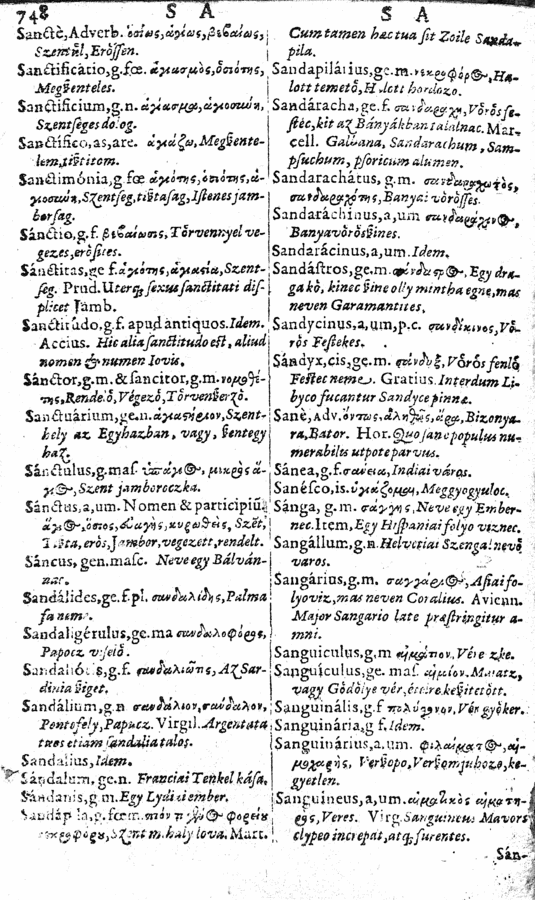 748 S A
Sanctè, Adverb. ὁσίως, ἁγίως, βεβαίως,
Szentül, Erössen.
Sanctificatio, g. fœ. ἁγιασμὸς, ὁσιότης,
Megßenteles.
Sanctificium, g. n. ἁγίασμα, ἁγιοσύνη,
Szentseges dolog.
Sanctifico, as, are. ἁγιάζω, Megßente-
lem, tißtitom.
Sanctimónia, g fœ ἁγιότης, ὁσιότης, ἁ-
γιοσύνη, Szentseg, tißtasag, Istenes jam-
borsag.
Sánctio, g. f. βεβαίωσις, Törvennyel ve-
gezes, erösites.
Sánctitas, ge f. ἁγιότης, ἁγιασία, Szent-
seg. Prud. Uterq; sexus sanctitati dis-
plicet Jamb.
Sanctitúdo, g. f. apud antiquos. Idem.
Accius. Hic alia sanctitudo est, aliud
nomen & numen Iovis.
Sánctor, g. m. & sancitor, g. m. νομοθέ-
της, Rendelö, Végezö, Törvenßerzö.
Sanctuárium, ge. n. ἁγιαστήριον, Szent-
hely az Egyhazban, vagy, ßentegy
haz.
Sánctulus, g. mas. ἁγιος, μικρὸς ἅ-
γιος, Szent jamboroczka.
Sánctus, a, um. Nomen & participiũ.
ἅγιος, ὅσιος, εὐαγὴς, κυρωθεὶς, Szẽt,
Tißta, erös, Jambor, vegezett, rendelt.
Sáncus, gen. masc. Neve egy Bálván-
nac.
Sandálides, ge. f. pl. σανδαλίδες, Palma
fa neme.
Sandaligérulus, ge. ma σανδαλοφόρος,
Papocz viselö.
Sandaliótis, g. f. σανδαλιῶτις, Az Sar-
dinia ßiget.
Sandálium, g. n σανδάλιον, σάνδαλον,
Pontofely, Papucz. Virgil. Argentata
tuos etiam sandalia talos.
Sandalius, Idem.
Sándalum, ge. n. Franciai Tenkel kása.
Sándanis, g m. Egy Lydiai ember.
Sandápila, g. fœm. φορεῖον
νεκροφόρον, Szent m. haly lova. Mart.
S A
Cum tamen hæc tua sit Zoile Sanda-
pila.
Sandapilárius, ge. m. νεκροφόρος, Ha-
lott temetö, Holott hordozo.
Sandáracha, ge. f. σανδαράχη, Vörös fe-
stéc, kit az Bányákban talalnac. Mar-
cell. Galbana, Sandarachum, Sam-
psuchum, psoricum alumen.
Sandarachátus, g. m. σανδαραχωτὸς,
σανδαραχότης, Banyai vörösses.
Sandaráchinus, a, um σανδαράχινος,
Banyavörösßines.
Sandarácinus, a, um. Idem.
Sandástros, ge. m. σάνδαστρος, Egy dra-
ga kö, kinec ßine olly mintha egne, mas
neven Garamantites.
Sandycinus, a, um, p. c. σανδύκινος, Vö-
rös Festekes.
Sándyx, cis, ge. m. σάνδυξ, Vörös fenlö
Festec neme. Gratius. Interdum Li-
byco fucantur Sandyce pinnæ.
Sanè, Adv. ὄντως, ἀληθῶς, ἄρα, Bizonya-
ra, Bator. Hor. Quo sanè populus nu-
merabilis utpote parvus.
Sánea, g. f. σανεία, Indiai város.
Sanésco, is. ὑγιάζομαι, Meggyogyuloc.
Sánga, g. m. σάγγης, Neve egy Ember-
nec. Item, Egy Hispaniai folyo viznec.
Sangállum, g. n. Helvetias Szengal nevö
varos.
Sangárius, g. m. σαγγάριος, Asiai fo-
lyoviz, mas neven Coralius. Avienn.
Major Sangario late præstringitur a-
mni.
Sanguiculus, g. m αἱμάτιον, Vére zke.
Sanguículus, ge. mas. αἱμίον. Maiatz,
vagy Gödölye vér, éttire keßitetött.
Sanguinális, g. f πολύγονον, Vér gyöker.
Sanguinária, g f. Idem.
Sanguinárius, a. um. φιλαίματος, αἱ-
μοχαρὴς, Verßopo, Verßomjuhozo, ke-
gyetlen.
Sanguineus, a, um. αἱματικὸς αἱματη-
ρὸς, Veres. Virg. Sanguineus Mavors
clypeo increpat, atq; furentes.
Sán-